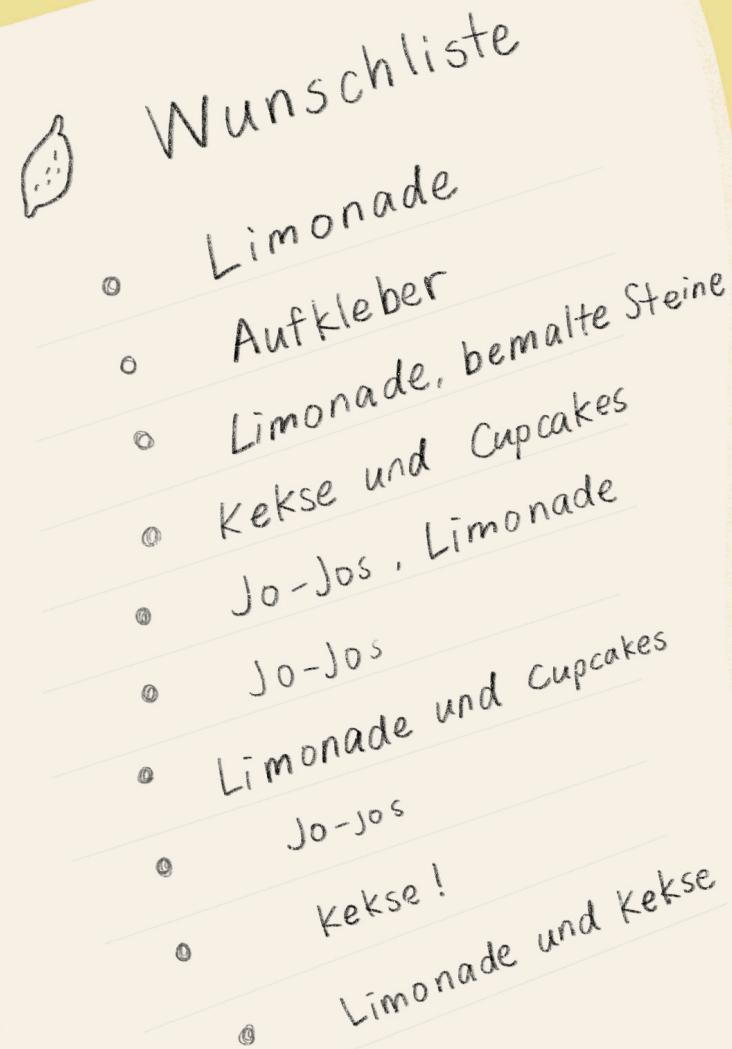 Wunschliste
Limonade
Aufkleber
Limonade, bemalte Steine
Kekse und Cupcakes
Jo-Jos, Limonade
Jo-Jos
Limonade und Cupcakes
Jo-Jos
Kekse!
Limonade und Kekse